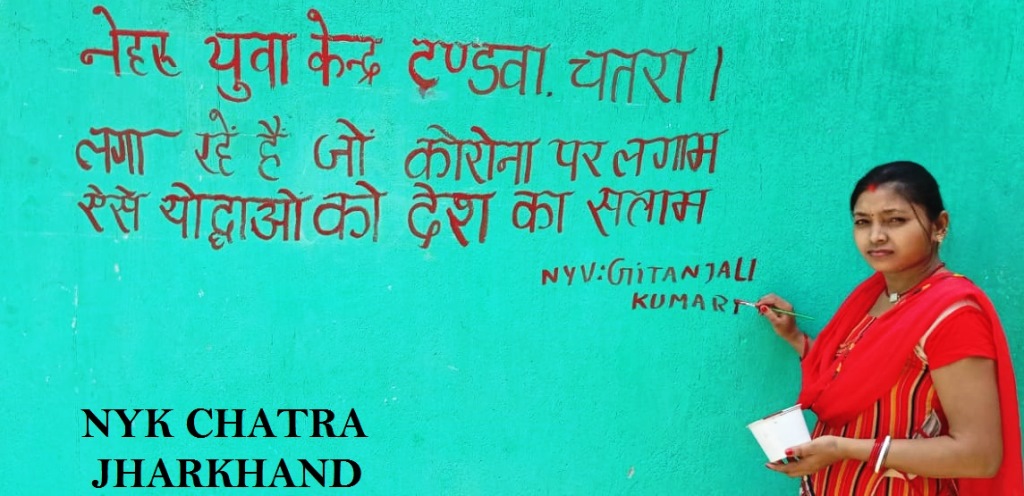 नेहरू युवा केन्द्र टण्डवा. चतरा।
लगा रहें हैं जो कोरोना पर लगाम
ऐसे योद्धाओं को देश का सलाम
NYV:GITANJALI
KUMARI
NYK CHATRA
JHARKHAND